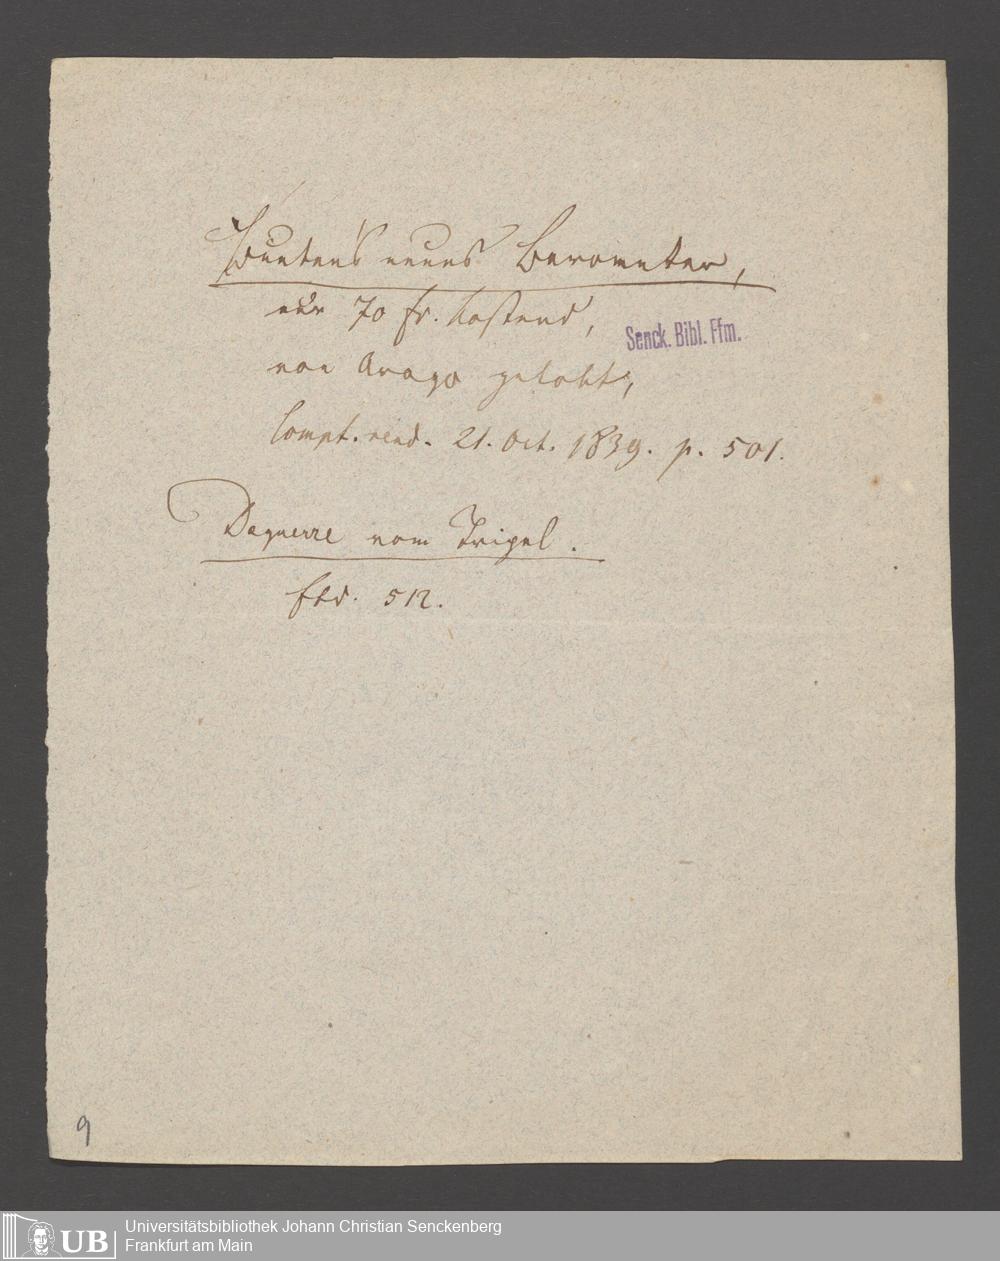 Bunten's neues Barometer,
nur 70 fr. kostend,
von Arago gelobt,
Senck. Bibl. Ffm.
Compt. rend. 21. Oct. 1839. p. 501.
Daguerre vom Tripel.
512.
9
UB
Universitätsbibliothek Johann Christian Senckenberg
Frankfurt am Main